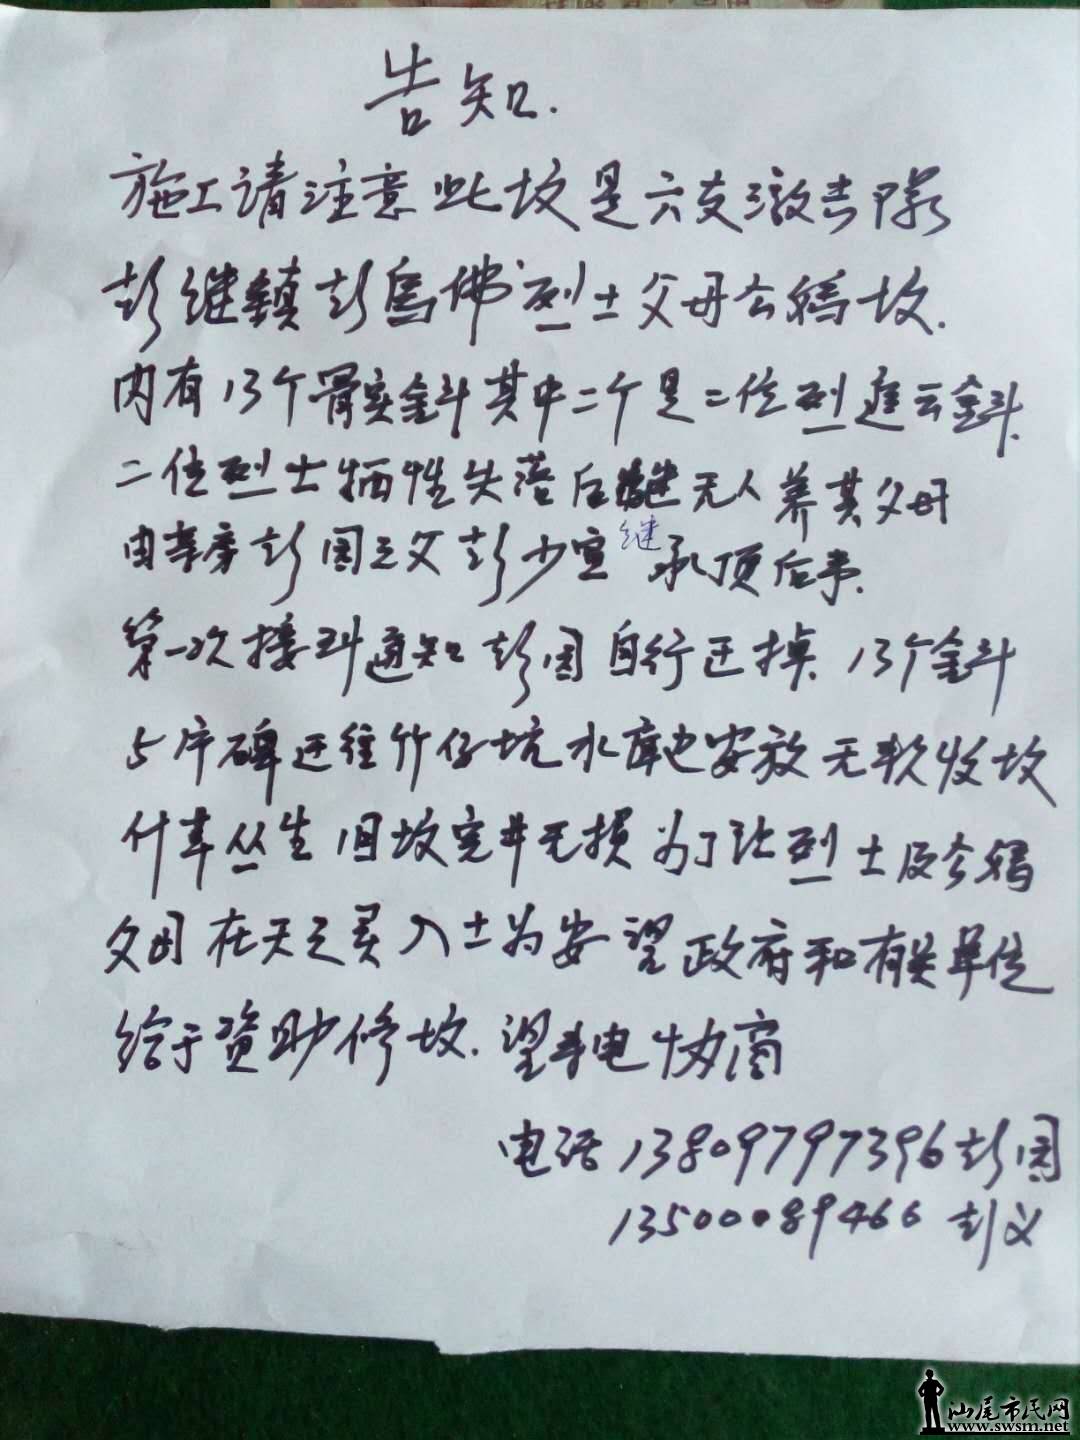 告知.
施工请注意此坟是六支激去队
彭继镇彭乌佛烈士父母公妈坟.
内有13个骨实金斗其中二个是二位烈 金斗.
二位烈士牺牲失落后继无人养其父母
由 房彭园之父彭少宣继承顶后事.
第一次接到通知彭园自行迁掉.13个金斗
5片碑迁往竹仔坑水库边安放无款收坟
什草丛生旧坟完井无损为了让烈士及公妈
父母在天之灵入土为安望政府和有关单位
给于资助修坟.望来电协商
电话13809797396彭园
13500089466彭义
汕尾市民网
www.swsm.net